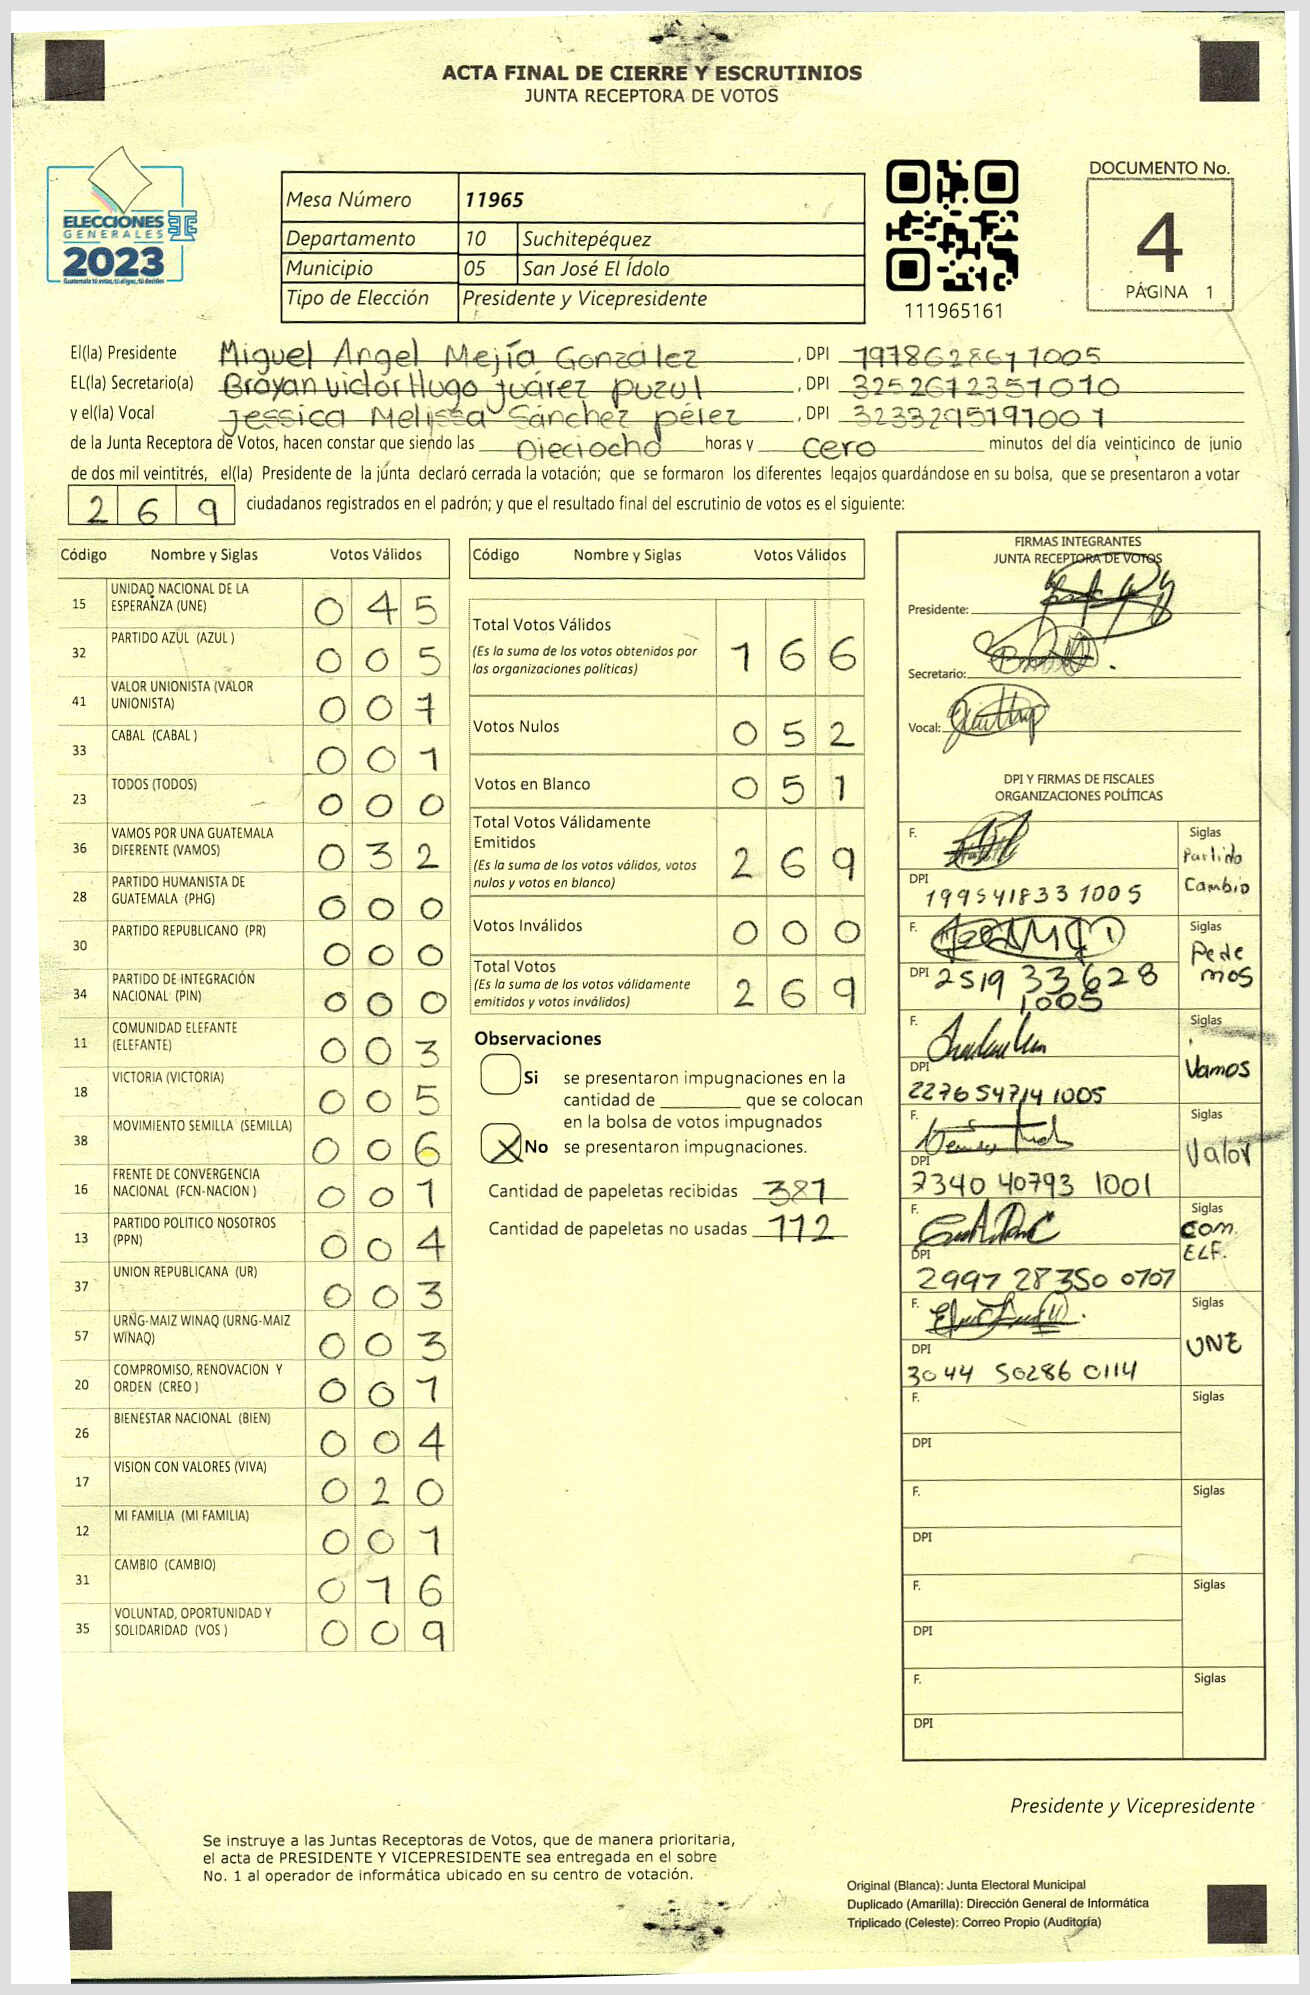 ACTA FINAL DE CIERRE Y ESCRUTINIOS
JUNTA RECEPTORA DE VOTOS
ELECCIONES
GENERALES
2023
Mesa Número 11965
Departamento 10 Suchitepéquez
Municipio 05 San José El Ídolo
Tipo de Elección Presidente y Vicepresidente
111965161
DOCUMENTO No.
4
PÁGINA 1
El(la) Presidente Miguel Angel Mejía González, DPI 1978628611005
EL(la) Secretario(a) Brayan victor Hugo juárez puzul, DPI 3252612351010
y el(la) Vocal Jessica Melissa Sánchez pérez, DPI 3233295191001
de la Junta Receptora de Votos, hacen constar que siendo las Dieciocho horas y cero minutos del día veinticinco de junio
de dos mil veintitrés, el(la) Presidente de la junta declaró cerrada la votación; que se formaron los diferentes legajos guardándose en su bolsa, que se presentaron a votar
269 ciudadanos registrados en el padrón; y que el resultado final del escrutinio de votos es el siguiente:
Código Nombre y Siglas Votos Válidos
15 UNIDAD NACIONAL DE LA ESPERANZA (UNE) 045
32 PARTIDO AZUL (AZUL ) 005
41 VALOR UNIONISTA (VALOR UNIONISTA) 007
33 CABAL (CABAL ) 001
23 TODOS (TODOS) 000
36 VAMOS POR UNA GUATEMALA DIFERENTE (VAMOS) 032
28 PARTIDO HUMANISTA DE GUATEMALA (PHG) 000
30 PARTIDO REPUBLICANO (PR) 000
34 PARTIDO DE INTEGRACIÓN NACIONAL (PIN) 000
11 COMUNIDAD ELEFANTE (ELEFANTE) 003
18 VICTORIA (VICTORIA) 005
38 MOVIMIENTO SEMILLA (SEMILLA) 006
16 FRENTE DE CONVERGENCIA NACIONAL (FCN-NACION ) 001
13 PARTIDO POLITICO NOSOTROS (PPN) 004
37 UNION REPUBLICANA (UR) 003
57 URNG-MAIZ WINAQ (URNG-MAIZ WINAQ) 003
20 COMPROMISO, RENOVACION Y ORDEN (CREO ) 001
26 BIENESTAR NACIONAL (BIEN) 004
17 VISION CON VALORES (VIVA) 020
12 MI FAMILIA (MI FAMILIA) 001
31 CAMBIO (CAMBIO) 016
35 VOLUNTAD, OPORTUNIDAD Y SOLIDARIDAD (VOS ) 009
Código Nombre y Siglas Votos Válidos
Total Votos Válidos 166
(Es la suma de los votos obtenidos por
las organizaciones políticas)
Votos Nulos 052
Votos en Blanco 051
Total Votos Válidamente
Emitidos 269
(Es la suma de los votos válidos, votos
nulos y votos en blanco)
Votos Inválidos 000
Total Votos 269
(Es la suma de los votos válidamente
emitidos y votos inválidos)
Observaciones
Si se presentaron impugnaciones en la
cantidad de ________ que se colocan
en la bolsa de votos impugnados
X No se presentaron impugnaciones.
Cantidad de papeletas recibidas 381
Cantidad de papeletas no usadas 112
FIRMAS INTEGRANTES
JUNTA RECEPTORA DE VOTOS
Presidente:
Secretario:
Vocal:
DPI Y FIRMAS DE FISCALES
ORGANIZACIONES POLÍTICAS
F. Siglas Partido Cambio
DPI 199541833 1005
F. Siglas Pode mos
DPI 2519 33628 1005
F. Siglas Vamos
DPI 2276 54714 1005
F. Siglas Valor
DPI 2340 40793 1001
F. Siglas COM. ELF.
DPI 2997 28350 0707
F. Siglas UNE
DPI 3044 50286 0114
F. Siglas
DPI
F. Siglas
DPI
F. Siglas
DPI
F. Siglas
DPI
Presidente y Vicepresidente
Se instruye a las Juntas Receptoras de Votos, que de manera prioritaria,
el acta de PRESIDENTE Y VICEPRESIDENTE sea entregada en el sobre
No. 1 al operador de informática ubicado en su centro de votación.
Original (Blanca): Junta Electoral Municipal
Duplicado (Amarilla): Dirección General de Informática
Triplicado (Celeste): Correo Propio (Auditoría)